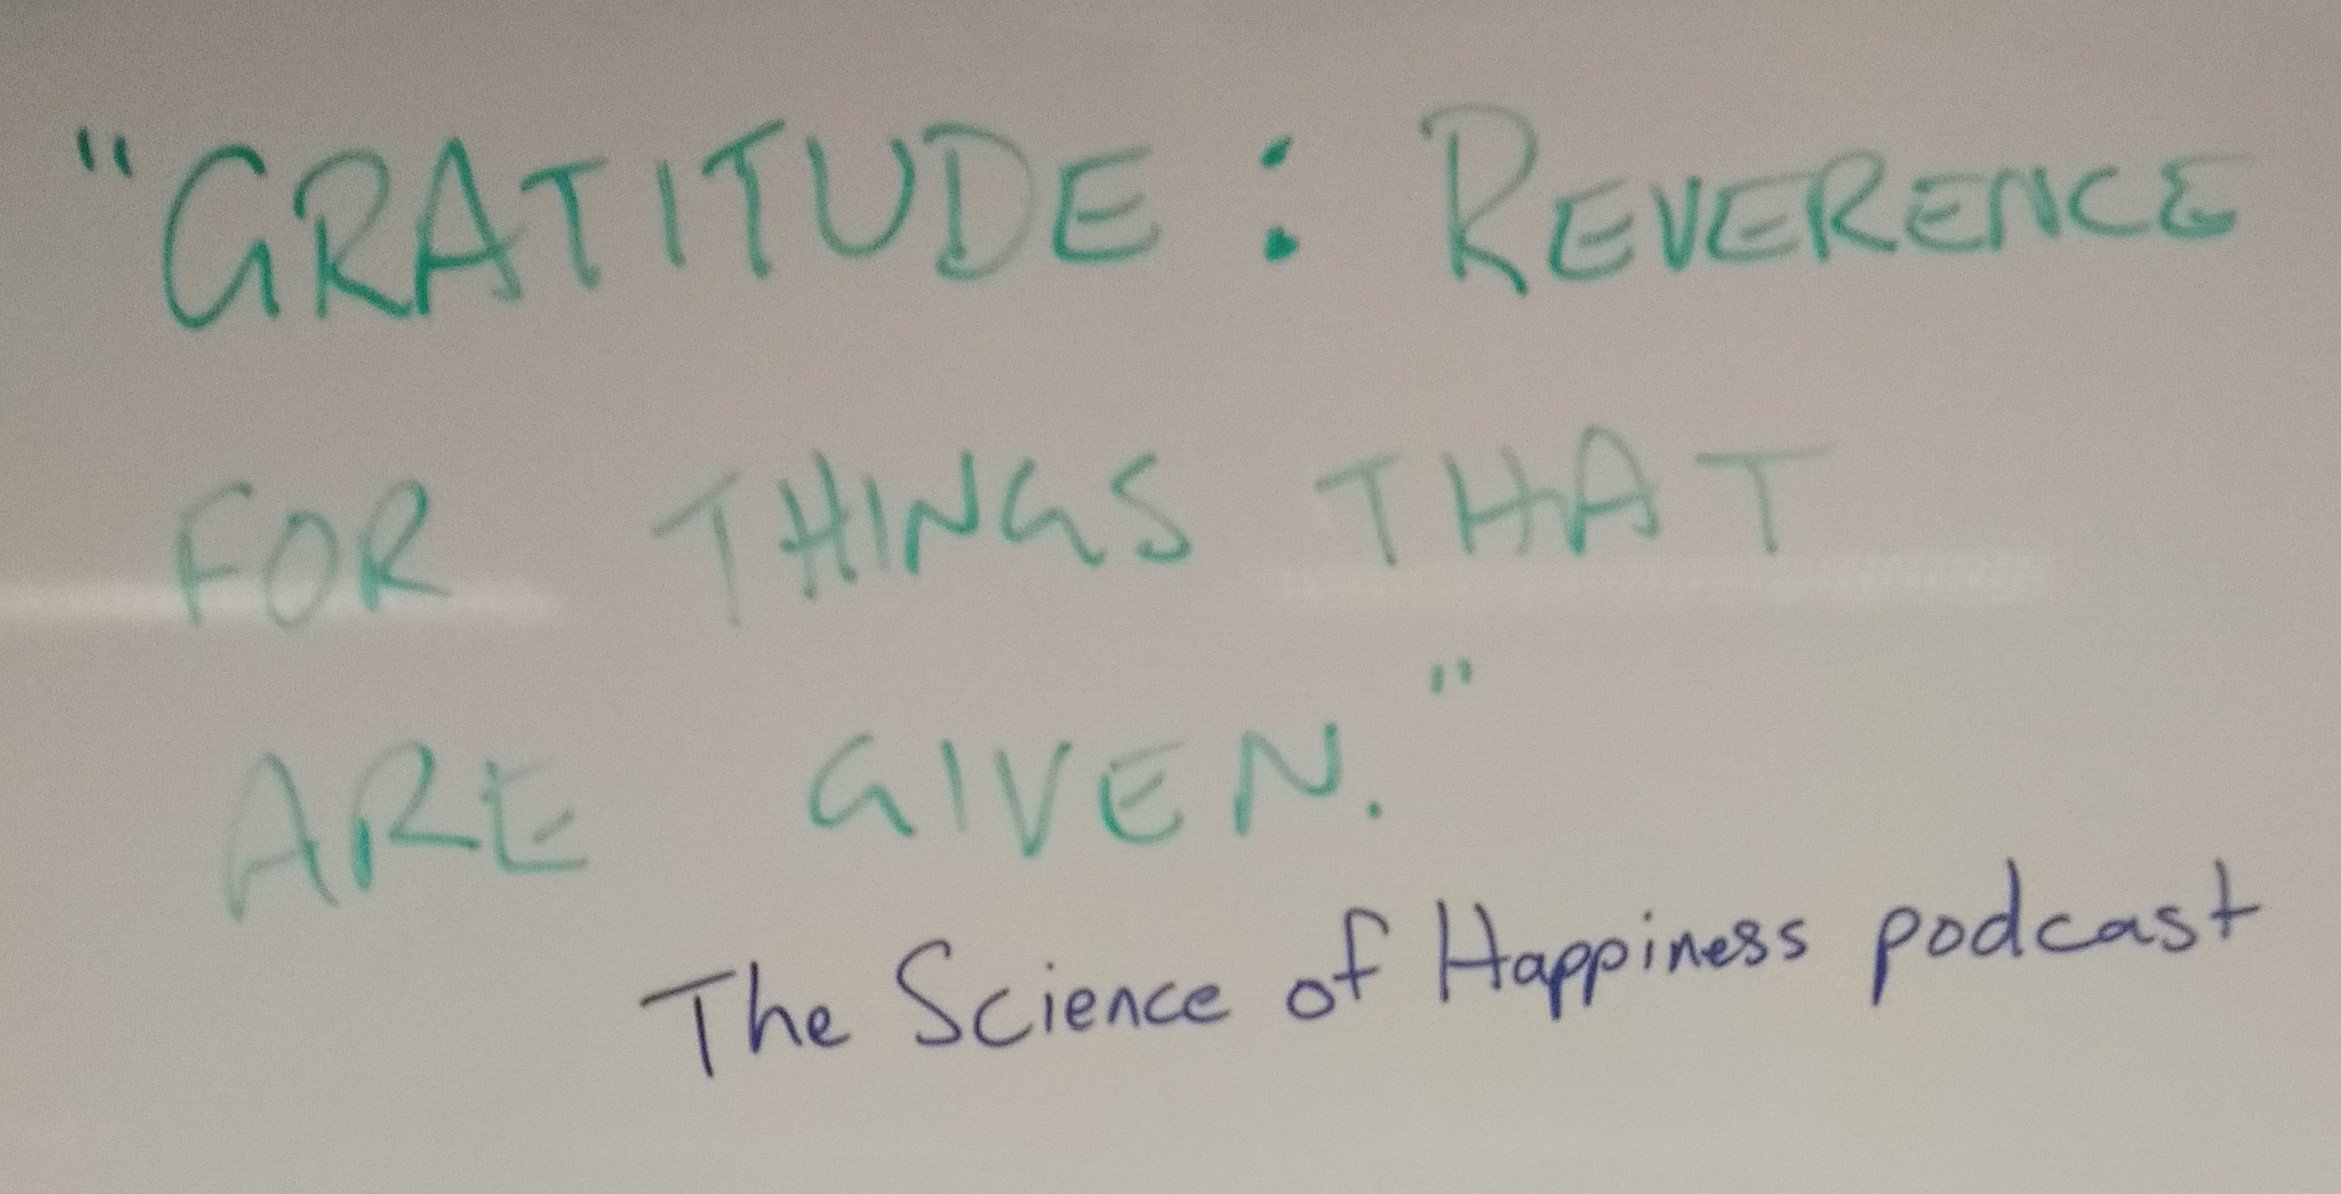 "GRATITUDE: REVERENCE
FOR THINGS THAT
ARE GIVEN."
The Science of Happiness podcast